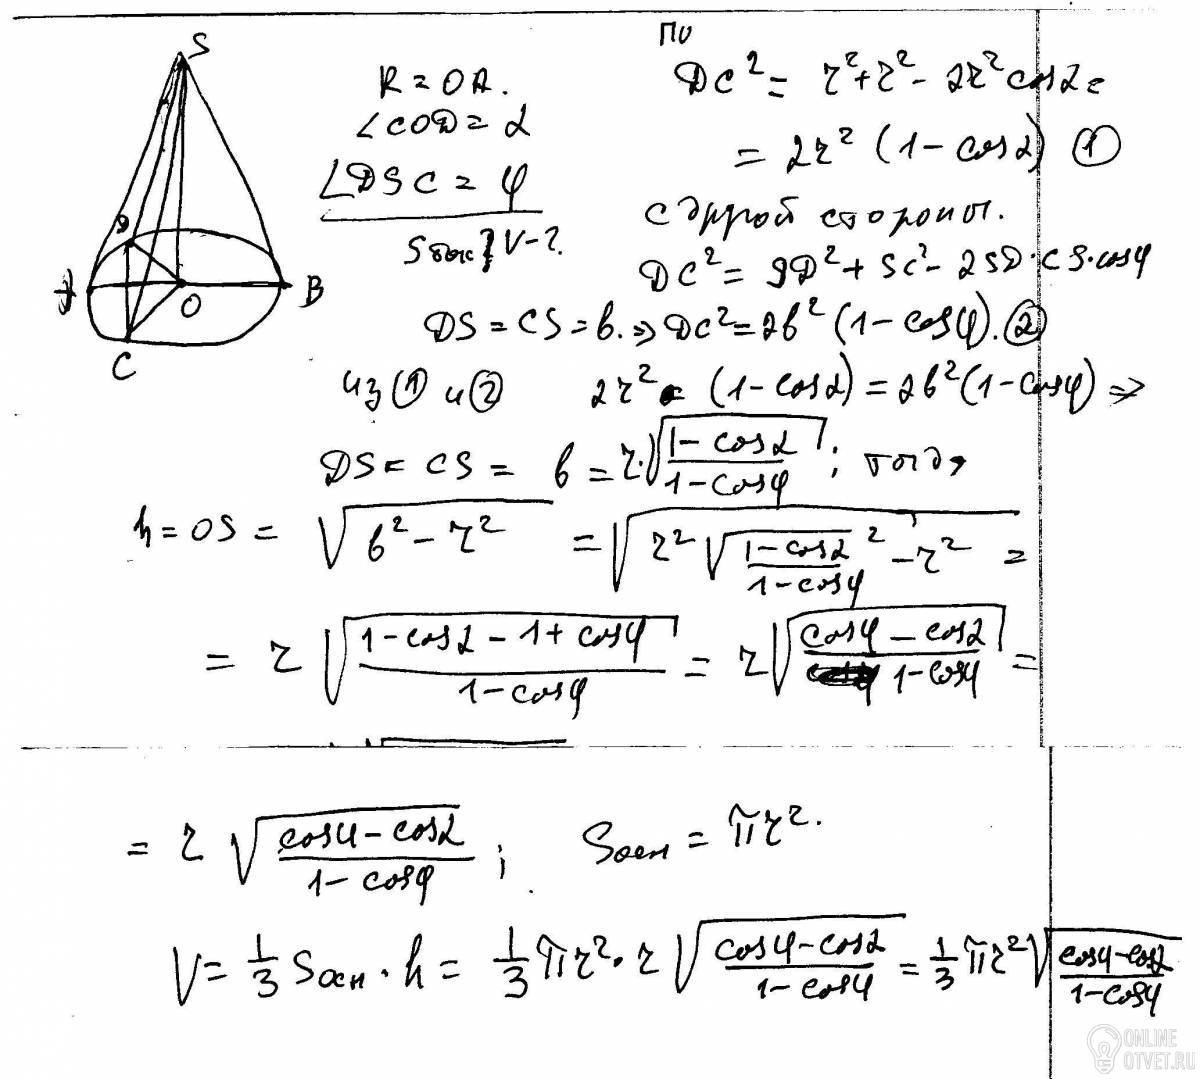 S
D
A
O
B
C
R = OA.
∠COD = α
∠DSC = φ
Sбок, V - ?
по
DC² = r² + r² - 2r² cosα =
= 2r² (1 - cosα) ①
с другой стороны.
DC² = SD² + SC² - 2SD·CS·cosφ
DS = CS = b. ⇒ DC² = 2b² (1 - cosφ). ②
из ① и ② 2r² (1 - cosα) = 2b² (1 - cosφ) ⇒
DS = CS = b = r·√((1 - cosα)/(1 - cosφ)); тогда
h = OS = √(b² - r²) = √(r² √((1 - cosα)/(1 - cosφ))² - r²) =
= r √((1 - cosα - 1 + cosφ)/(1 - cosφ)) = r √((cosφ - cosα)/(1 - cosφ)) =
= r √((cosφ - cosα)/(1 - cosφ)); Sосн = πr².
V = 1/3 Sосн · h = 1/3 πr² · r √((cosφ - cosα)/(1 - cosφ)) = 1/3 πr² √((cosφ - cosα)/(1 - cosφ))
ONLINE
OTVET.RU